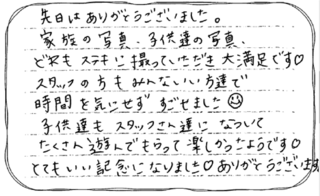 先日はありがとうございました。
家族の写真、子供達の写真、
どれもステキに撮っていただき大満足です♡
スタッフの方もみんないい方達で
時間を気にせずすごせました☺
子供達もスタッフさん達になついて
たくさん遊んでもらって楽しかったようです♡
とてもいい記念になりました♡ありがとうございます